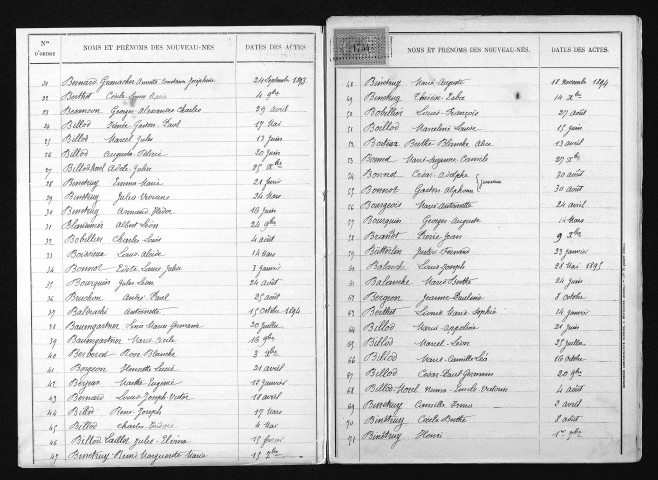 Nos D'ORDRE NOMS ET PRÉNOMS DES NOUVEAU-NÉS DATES DES ACTES
21 Bernard 24 Septembre 1893
22 Berthet Cécile Louise Marie 4 9bre
23 Besançon Georges Alexandre Charles 29 avril
24 Billod Gaston Paul 17 Mai
25 Billod Marcel Jules 13 Juin
26 Billod Augusta 20 Juin
27 Adèle Julia 25 Xbre
28 Binétruy Emma Marie 21 Janv
29 Binétruy Julia 24 Mars
30 Binétruy Armand 16 Juin
31 Albert Léon 24 9bre
32 Bobillier Charles Louis 4 août
33 Boissieux Louis 14 Mars
34 Bonnot Louis Jules 3 Janvier
35 Bourquin Jules Léon 24 août
36 André Paul 25 août
37 Antoinette 15 Octobre 1894
38 Baumgartner Marie Germaine 20 Juillet
39 Baumgartner Marie 16 9bre
40 Rose Blanche 3 Xbre
41 Bergeon Henriette Lucie 21 avril
42 Marthe Eugénie 12 Janvier
43 Bernard Louis Joseph Victor 18 avril
44 Billod René Joseph 17 Mars
45 Billod Charles 4 Mai
46 Billod Jules 15 février
47 Binétruy Marguerite Marie 15 7bre
NOMS ET PRÉNOMS DES NOUVEAU-NÉS. DATES DES ACTES.
48 Binétruy Marie Auguste 18 Novembre 1894
49 Binétruy Thérèse 14 Xbre
50 Bobillier Louis François 27 août
51 Boillod Marceline Louise 15 Juin
52 Berthe Blanche Alice 13 avril
53 Bonnot Marie Suzanne Camille 27 Xbre
54 Bonnot César Adolphe 30 août
55 Bonnot Gaston Alphonse 30 août
56 Bourgeois Marie Antoinette 24 avril
57 Bourquin Georges Auguste 14 Mars
58 Brandt Pierre Jean 9 Xbre
59 Butterlin Fernand 23 Janvier
60 Balanche Louis Joseph 28 Mai 1895
61 Balanche Marie Berthe 24 Juin
62 Bergeon Jeanne Pauline 8 Octobre
63 Berthet Marie Sophie 14 Janvier
64 Billod Marie Appoline 21 Juin
65 Billod Marcel Léon 25 Juillet
66 Billod Marie Camille Léa 16 Octobre
67 Billod César Paul Germain 20 9bre
68 Billod-Morel Numa Emile Victorin 4 août
69 Binétruy Camille 2 avril
70 Binétruy Cécile Berthe 8 août
71 Binétruy Henri 1er 7bre